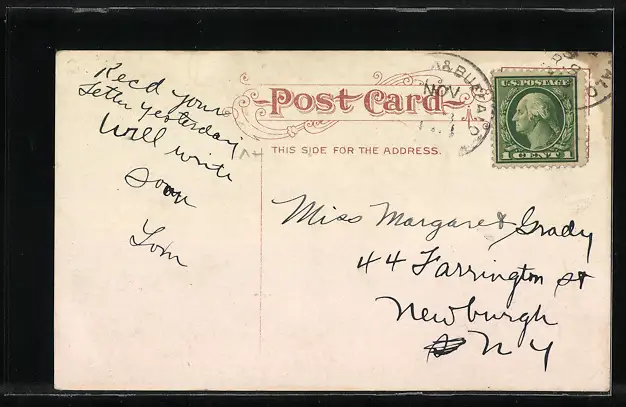 Recd your
letter yesterday
Will write
soon
Tom
Post Card
THIS SIDE FOR THE ADDRESS.
& BUFFALO
NOV
U.S. POSTAGE
1 CENT 1
Miss Margaret Grady
44 Farrington St
Newburgh
N Y